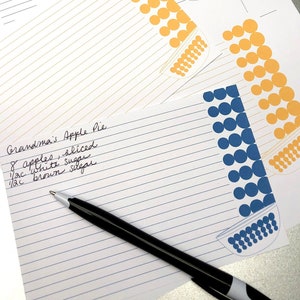 Grandma's Apple Pie
8 apples, sliced
1/2c white sugar
1/2c brown sugar